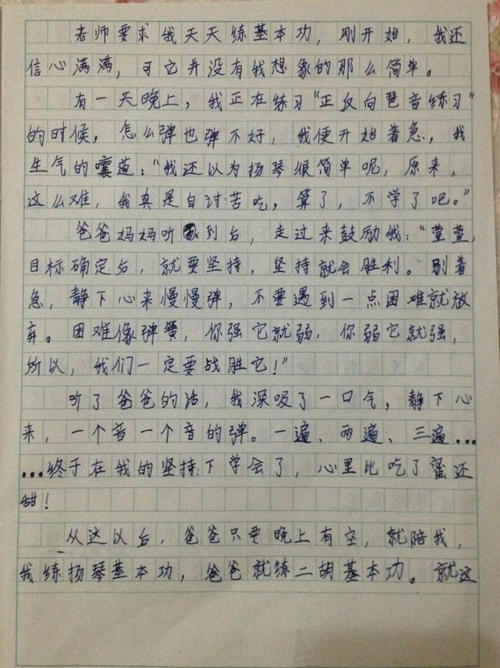 老师要求我天天练基本功，刚开始，我还
信心满满，可它并没有我想象的那么简单。
有一天晚上，我正在练习“正反向琶音练习”
的时候，怎么弹也弹不好，我便开始着急，我
生气的嚷道：“我还以为扬琴很简单呢，原来，
这么难，我真是自讨苦吃，算了，不学了吧。”
爸爸妈妈听到后，走过来鼓励我：“萱萱，
目标确定后，就要坚持，坚持就会胜利。别着
急，静下心来慢慢弹，不要遇到一点困难就放
弃。困难像弹簧，你强它就弱，你弱它就强，
所以，我们一定要战胜它！”
听了爸爸的话，我深吸了一口气，静下心
来，一个音一个音的弹。一遍、两遍、三遍…
…终于在我的坚持下学会了，心里比吃了蜜还
甜！
从这以后，爸爸只要晚上有空，就陪我，
我练扬琴基本功，爸爸就练二胡基本功。就这